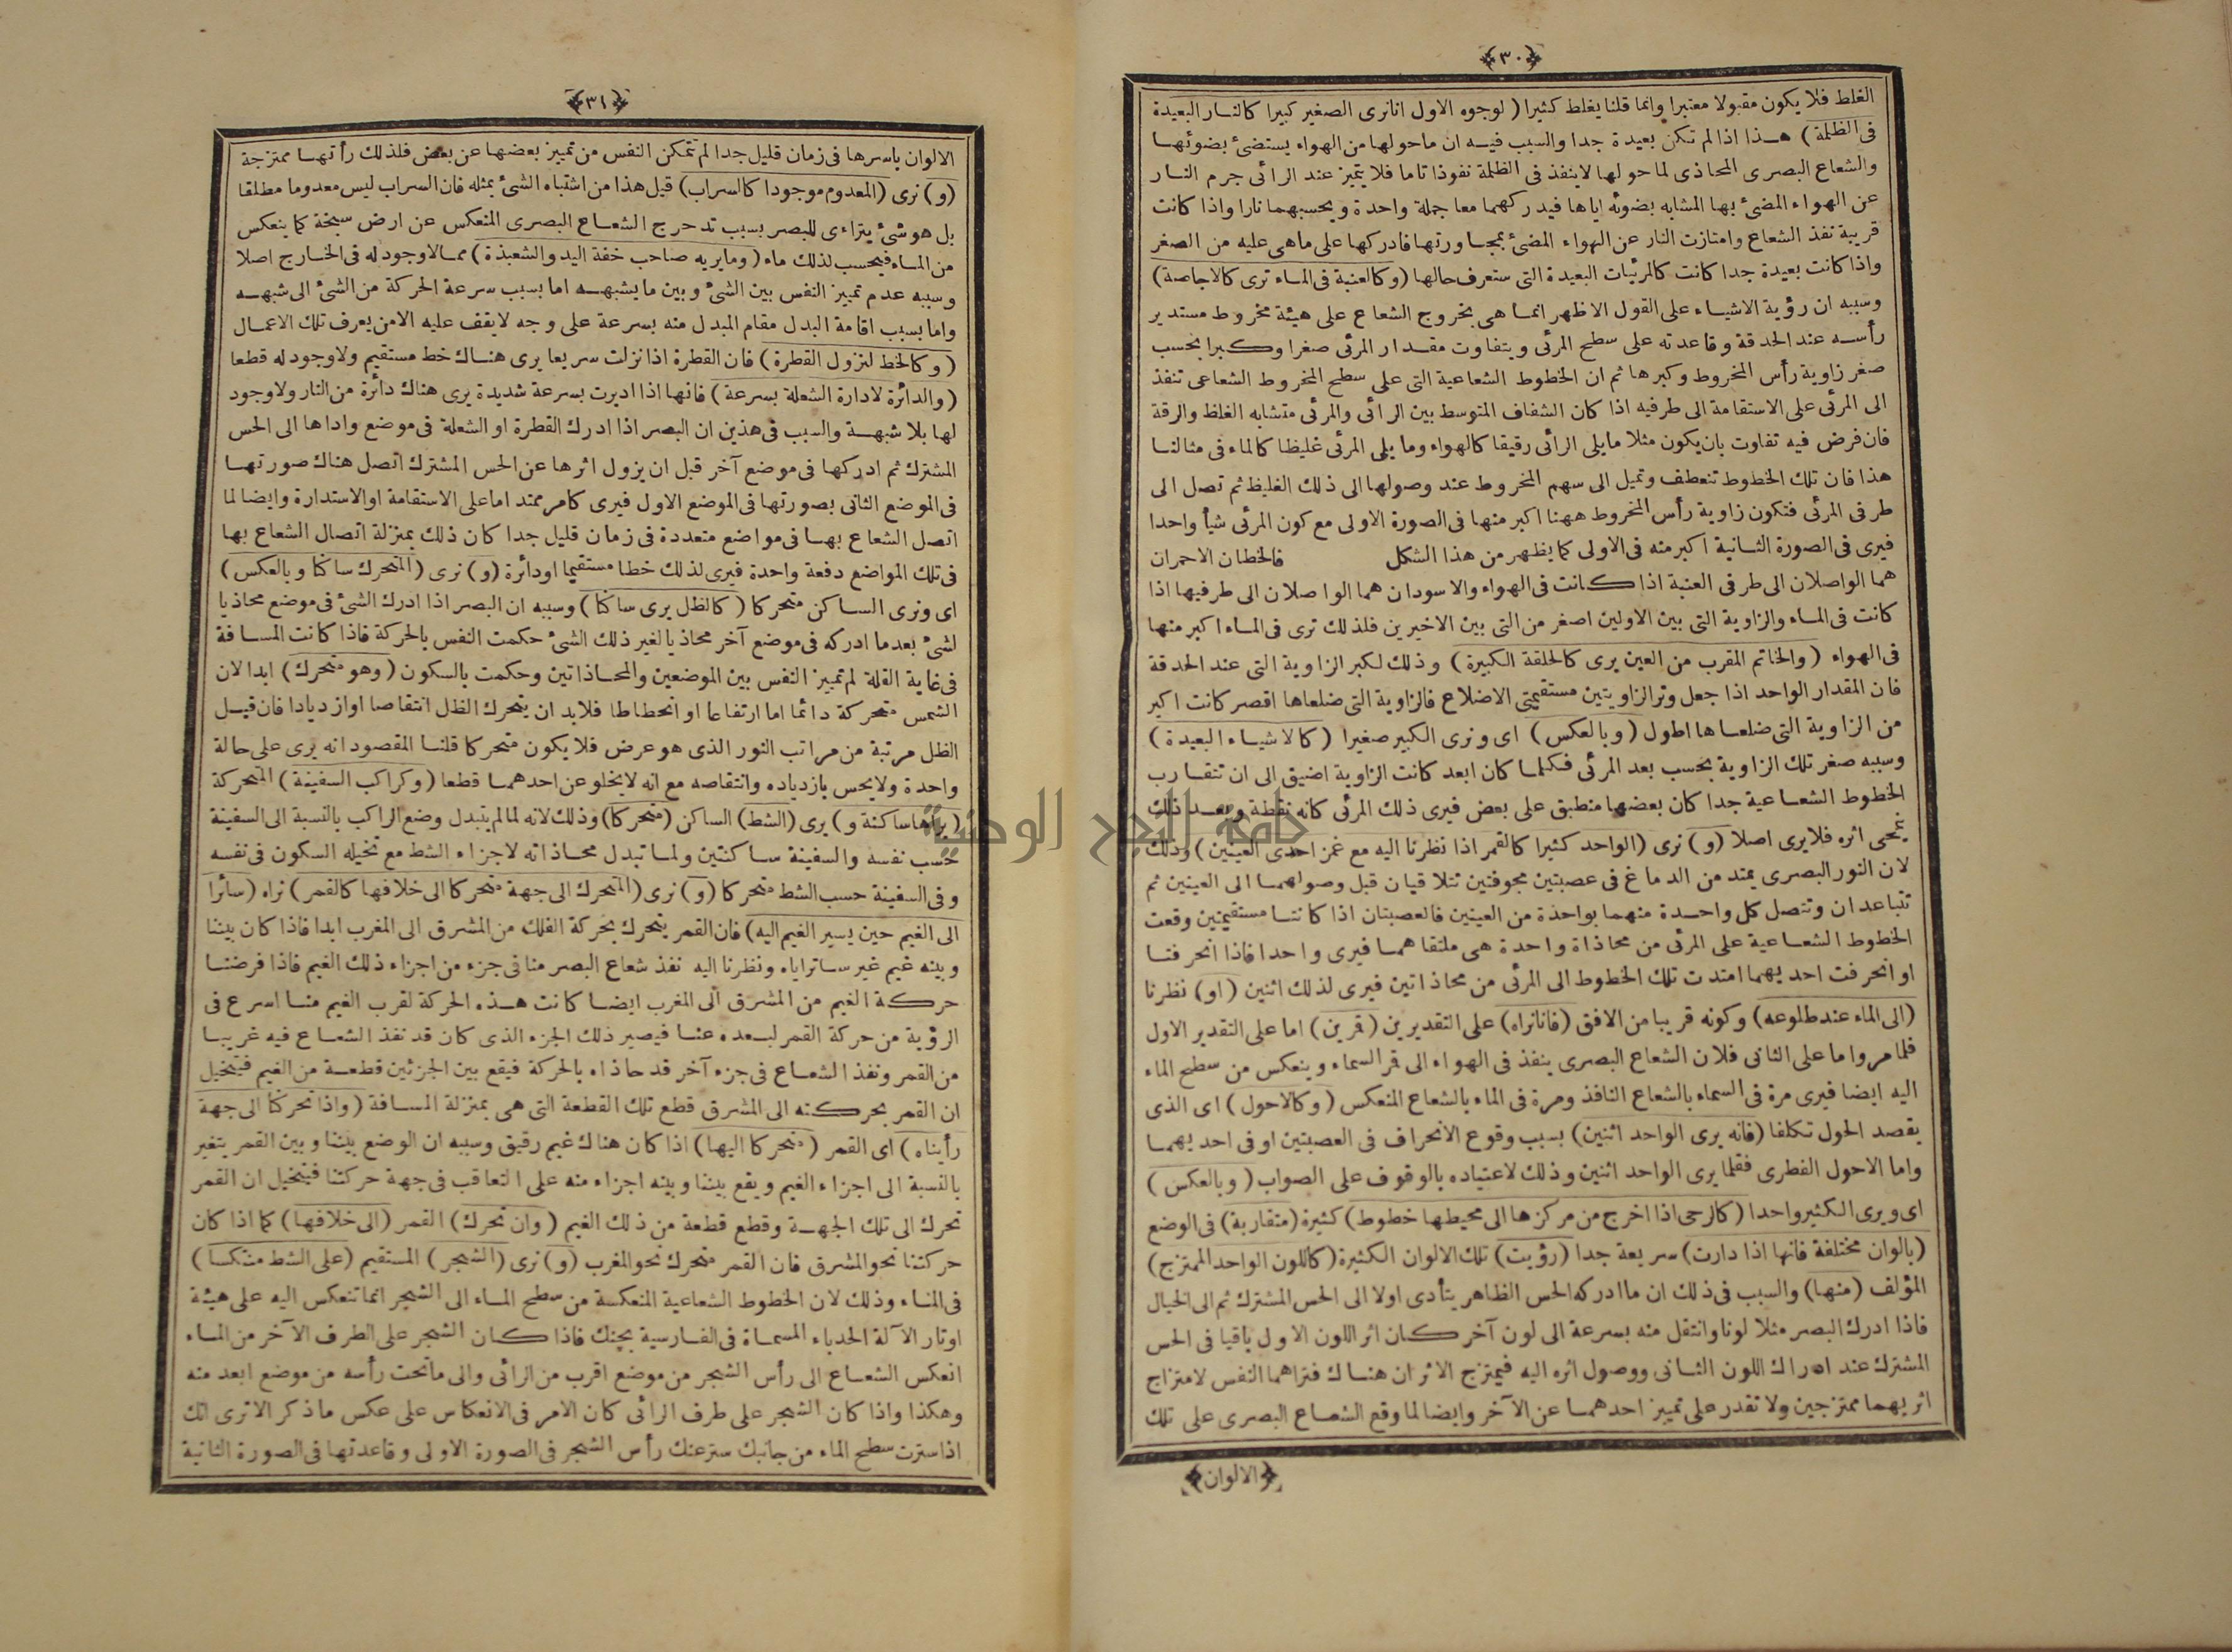 ﴿٣٠﴾
الغلط فلا يكون مقبولا معتبرا وانما قلنا يغلط كثيرا ( لوجوه الاول انا نرى الصغير كبيرا كالنار البعيدة
فى الظلمة ) هذا اذا لم تكن بعيدة جدا والسبب فيه ان ما حولها من الهواء يستضئ بضوئها
والشعاع البصرى المحاذى لما حولها لا ينفذ فى الظلمة نفوذا تاما فلا يتميز عند الرائى جرم النار
عن الهواء المضئ بها المشابه بضوئه اياها فيدركهما معا جملة واحدة ويحسبهما نارا واذا كانت
قريبة نفذ الشعاع وامتازت النار عن الهواء المضئ بمجاورتها فادركها على ما هى عليه من الصغر
واذا كانت بعيدة جدا كانت كالمرئيات البعيدة التى ستعرف حالها ( وكالعنبة فى الماء ترى كالاجاصة )
وسببه ان رؤية الاشياء على القول الاظهر انما هى بخروج الشعاع على هيئة مخروط مستدير
رأسه عند الحدقة وقاعدته على سطح المرئى ويتفاوت مقدار المرئى صغرا وكبرا بحسب
صغر زاوية رأس المخروط وكبرها ثم ان الخطوط الشعاعية التى على سطح المخروط الشعاعى تنفذ
الى المرئى على الاستقامة الى طرفيه اذا كان الشفاف المتوسط بين الرائى والمرئى متشابه الغلظ والرقة
فان فرض فيه تفاوت بان يكون مثلا ما يلى الرائى رقيقا كالهواء وما يلى المرئى غليظا كالماء فى مثالنا
هذا فان تلك الخطوط تنعطف وتميل الى سهم المخروط عند وصولها الى ذلك الغليظ ثم تصل الى
طرفى المرئى فتكون زاوية رأس المخروط ههنا اكبر منها فى الصورة الاولى مع كون المرئى شيأ واحدا
فيرى فى الصورة الثانية اكبر منه فى الاولى كما يظهر من هذا الشكل فالخطان الاحمران
هما الواصلان الى طرفى العنبة اذا كانت فى الهواء والاسودان هما الواصلان الى طرفيها اذا
كانت فى الماء والزاوية التى بين الاولين اصغر من التى بين الاخيرين فلذلك ترى فى الماء اكبر منها
فى الهواء ( والخاتم المقرب من العين يرى كالحلقة الكبيرة ) وذلك لكبر الزاوية التى عند الحدقة
فان المقدار الواحد اذا جعل وتر الزاويتين مستقيمتى الاضلاع فالزاوية التى ضلعاها اقصر كانت اكبر
من الزاوية التى ضلعاها اطول ( وبالعكس ) اى ونرى الكبير صغيرا ( كالاشياء البعيدة )
وسببه صغر تلك الزاوية بحسب بعد المرئى فكلما كان ابعد كانت الزاوية اضيق الى ان تتقارب
الخطوط الشعاعية جدا كان بعضها منطبق على بعض فيرى ذلك المرئى كانه نقطة وبعد ذلك
ينمحى اثره فلا يرى اصلا ( و ) نرى ( الواحد كثيرا كالقمر اذا نظرنا اليه مع غمز احدى العينين ) وذلك
لان النور البصرى يمتد من الدماغ فى عصبتين مجوفتين تتلاقيان قبل وصولهما الى العينين ثم
تتباعدان وتتصل كل واحدة منهما بواحدة من العينين فالعصبتان اذا كانتا مستقيمتين وقعت
الخطوط الشعاعية على المرئى من محاذاة واحدة هى ملتقاهما فيرى واحدا فاذا انحرفتا
او انحرفت احديهما امتدت تلك الخطوط الى المرئى من محاذاتين فيرى لذلك اثنين ( او ) نظرنا
( الى الماء عند طلوعه ) وكونه قريبا من الافق ( فانا نراه ) على التقديرين ( قمرين ) اما على التقدير الاول
فلما مر واما على الثانى فلان الشعاع البصرى ينفذ فى الهواء الى قمر السماء وينعكس من سطح الماء
اليه ايضا فيرى مرة فى السماء بالشعاع النافذ ومرة فى الماء بالشعاع المنعكس ( وكالاحول ) اى الذى
يقصد الحول تكلفا ( فانه يرى الواحد اثنين ) بسبب وقوع الانحراف فى العصبتين او فى احديهما
واما الاحول الفطرى فقلما يرى الواحد اثنين وذلك لاعتياده بالوقوف على الصواب ( وبالعكس )
اى ويرى الكثير واحدا ( كالرحى اذا اخرج من مركزها الى محيطها خطوط ) كثيرة ( متقاربة ) فى الوضع
( بالوان مختلفة فانها اذا دارت ) سريعة جدا ( رؤيت ) تلك الالوان الكثيرة ( كاللون الواحد الممتزج )
المؤلف ( منها ) والسبب فى ذلك ان ما ادركه الحس الظاهر يتأدى اولا الى الحس المشترك ثم الى الخيال
فاذا ادرك البصر مثلا لونا وانتقل منه بسرعة الى لون آخر كان اثر اللون الاول باقيا فى الحس
المشترك عند ادراك اللون الثانى ووصول اثره اليه فيمتزج الاثران هناك فتراهما النفس لامتزاج
اثريهما ممتزجين ولا تقدر على تمييز احدهما عن الآخر وايضا لما وقع الشعاع البصرى على تلك
﴿الالوان﴾
﴿٣١﴾
الالوان باسرها فى زمان قليل جدا لم تتمكن النفس من تمييز بعضها عن بعض فلذلك رأتها ممتزجة
( و ) نرى ( المعدوم موجودا كالسراب ) قيل هذا من اشتباه الشئ بمثله فان السراب ليس معدوما مطلقا
بل هو شئ يتراءى للبصر بسبب تدحرج الشعاع البصرى المنعكس عن ارض سبخة كما ينعكس
من الماء فيحسب لذلك ماء ( وما يريه صاحب خفة اليد والشعبذة ) مما لا وجود له فى الخارج اصلا
وسببه عدم تمييز النفس بين الشئ وبين ما يشبهه اما بسبب سرعة الحركة من الشئ الى شبهه
واما بسبب اقامة البدل مقام المبدل منه بسرعة على وجه لا يقف عليه الا من يعرف تلك الاعمال
( وكالخط لنزول القطرة ) فان القطرة اذا نزلت سريعا يرى هناك خط مستقيم ولا وجود له قطعا
( والدائرة لادارة الشعلة بسرعة ) فانها اذا اديرت بسرعة شديدة يرى هناك دائرة من النار ولا وجود
لها بلا شبهة والسبب فى هذين ان البصر اذا ادرك القطرة او الشعلة فى موضع واداها الى الحس
المشترك ثم ادركها فى موضع آخر قبل ان يزول اثرها عن الحس المشترك اتصل هناك صورتها
فى الموضع الثانى بصورتها فى الموضع الاول فيرى كامر ممتد اما على الاستقامة او الاستدارة وايضا لما
اتصل الشعاع بها فى مواضع متعددة فى زمان قليل جدا كان ذلك بمنزلة اتصال الشعاع بها
فى تلك المواضع دفعة واحدة فيرى لذلك خطا مستقيما او دائرة ( و ) نرى ( المتحرك ساكنا وبالعكس )
اى ونرى الساكن متحركا ( كالظل يرى ساكنا ) وسببه ان البصر اذا ادرك الشئ فى موضع محاذيا
لشئ بعد ما ادركه فى موضع آخر محاذيا لغير ذلك الشئ حكمت النفس بالحركة فاذا كانت المسافة
فى غاية القلة لم تميز النفس بين الموضعين والمحاذاتين وحكمت بالسكون ( وهو متحرك ) ابدا لان
الشمس متحركة دائما اما ارتفاعا او انحطاطا فلا بد ان يتحرك الظل انتقاصا او ازديادا فان قيل
الظل مرتبة من مراتب النور الذى هو عرض فلا يكون متحركا قلنا المقصود انه يرى على حالة
واحدة ولا يحس بازدياده وانتقاصه مع انه لا يخلو عن احدهما قطعا ( وكراكب السفينة ) المتحركة
( يراها ساكنة و ) يرى ( الشط ) الساكن ( متحركا ) وذلك لانه لما لم يتبدل وضع الراكب بالنسبة الى السفينة
حسب نفسه والسفينة ساكنتين ولما تبدل محاذاته لاجزاء الشط مع تخيله السكون فى نفسه
وفى السفينة حسب الشط متحركا ( و ) نرى ( المتحرك الى جهة متحركا الى خلافها كالقمر ) نراه ( سائرا
الى الغيم حين يسير الغيم اليه ) فان القمر يتحرك بحركة الفلك من المشرق الى المغرب ابدا فاذا كان بيننا
وبينه غيم غير ساتر اياه ونظرنا اليه نفذ شعاع البصر منا فى جزء من اجزاء ذلك الغيم فاذا فرضنا
حركة الغيم من المشرق الى المغرب ايضا كانت هذه الحركة لقرب الغيم منا اسرع فى
الرؤية من حركة القمر لبعده عنا فيصير ذلك الجزء الذى كان قد نفذ الشعاع فيه غريبا
من القمر ونفذ الشعاع فى جزء آخر قد حاذاه بالحركة فيقع بين الجزئين قطعة من الغيم فيتخيل
ان القمر بحركته الى المشرق قطع تلك القطعة التى هى بمنزلة المسافة ( واذا تحركنا الى جهة
رأيناه ) اى القمر ( متحركا اليها ) اذا كان هناك غيم رقيق وسببه ان الوضع بيننا وبين القمر يتغير
بالنسبة الى اجزاء الغيم ويقع بيننا وبينه اجزاء منه على التعاقب فى جهة حركتنا فيتخيل ان القمر
تحرك الى تلك الجهة وقطع قطعة من ذلك الغيم ( وان تحرك ) القمر ( الى خلافها ) كما اذا كان
حركتنا نحو المشرق فان القمر متحرك نحو المغرب ( و ) نرى ( الشجر ) المستقيم ( على الشط منتكسا )
فى الماء وذلك لان الخطوط الشعاعية المنعكسة من سطح الماء الى الشجر انما تنعكس اليه على هيئة
اوتار الآلة الحدباء المسماة فى الفارسية بچنك فاذا كان الشجر على الطرف الآخر من الماء
انعكس الشعاع الى رأس الشجر من موضع اقرب من الرائى والى ما تحت رأسه من موضع ابعد منه
وهكذا واذا كان الشجر على طرف الرائى كان الامر فى الانعكاس على عكس ما ذكر الا ترى انك
اذا سترت سطح الماء من جانبك ستر عنك رأس الشجر فى الصورة الاولى وقاعدتها فى الصورة الثانية
جامعة النجاح الوطنية